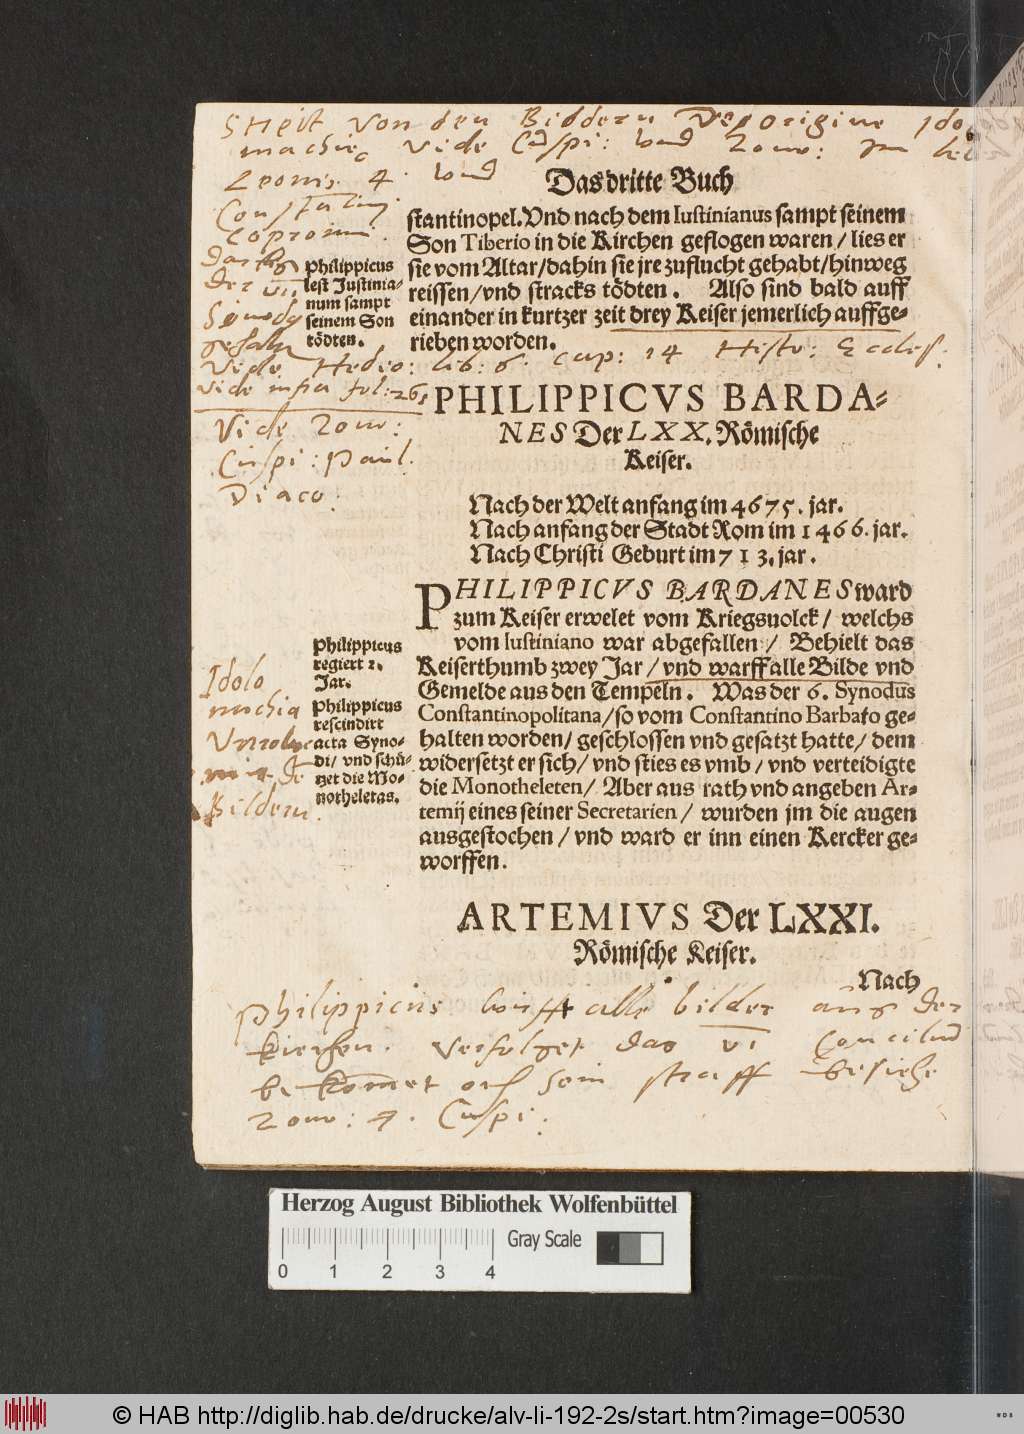 Das dritte Buch
stantinopel. Vnd nach dem Iustinianus sampt seinem
Son Tiberio in die Kirchen geflogen waren / lies er
sie vom Altar / dahin sie jre zuflucht gehabt / hinweg
reissen / vnd stracks tödten. Also sind bald auff
einander in kurtzer zeit drey Keiser jemerlich auffge-
rieben worden.
Philippicus
lest Justinia-
num sampt
seinem Son
tödten.
Vide Hedio: lib: 6. cap: 14 Histo: Eccles.
Vide infra fol: 26
PHILIPPICVS BARDA-
NES Der LXX. Römische
Keiser.
Vide Zona:
Cuspi: Paul.
Diaco.
Nach der Welt anfang im 4675. jar.
Nach anfang der Stadt Rom im 1466. jar.
Nach Christi Geburt im 713. jar.
PHILIPPICVS BARDANES ward
zum Keiser erwelet vom Kriegsuolck / welchs
vom Iustiniano war abgefallen / Behielt das
Keiserthumb zwey Jar / vnd warff alle Bilde vnd
Gemelde aus den Tempeln. Was der 6. Synodus
Constantinopolitana / so vom Constantino Barbato ge-
halten worden / geschlossen vnd gesatzt hatte / dem
widersetzt er sich / vnd sties es vmb / vnd verteidigte
die Monotheleten / Aber aus rath vnd angeben Ar-
temij eines seiner Secretarien / wurden jm die augen
ausgestochen / vnd ward er inn einen Kercker ge-
worffen.
Philippicus
regiert 2.
Jar.
Philippicus
rescindirt
acta Syno-
di / vnd schü-
tzet die Mo-
notheletas.
Idolo
machia
Bildern.
ARTEMIVS Der LXXI.
Römische Keiser.
Nach
Philippicus wirfft alle bilder aus der
kirchen. Verfolget das VI Concilium
bekommet sein straff besiehe
Zona: 4. Cuspi:
Herzog August Bibliothek Wolfenbüttel
Gray Scale
0 1 2 3 4
© HAB http://diglib.hab.de/drucke/alv-li-192-2s/start.htm?image=00530